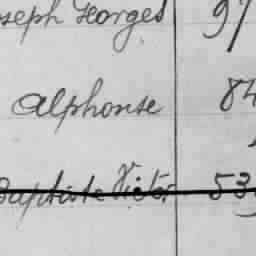 Joseph Georges 97
Alphonse 84
Baptiste Victor 53